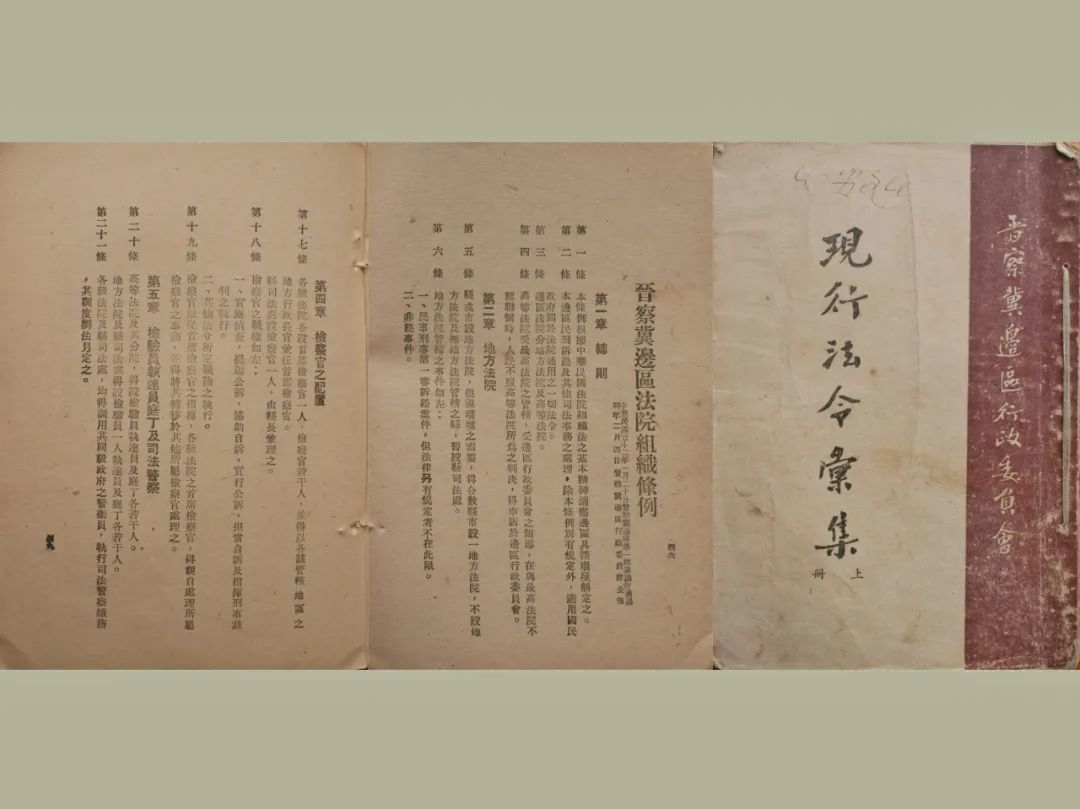 晉察冀邊區行政委員會
現行法令彙集
上冊
四六
晉察冀邊區法院組織條例
中華民國三十二年一月二十日晉察冀邊區第一屆參議會通過
同年二月四日晉察冀邊區行政委員會公佈
第一章 總則
第一條 本條例根據中華民國法院組織法之基本精神適應邊區具體環境制定之。
第二條 本邊區民刑訴訟及其他司法事務之處理，除本條例別有規定外，適用國民
政府關於法院通用之一切法令。
第三條 邊區法院分地方法院及高等法院。
第四條 高等法院受最高法院之管轄，受邊區行政委員會之領導，在與最高法院不
能聯繫時，人民不服高等法院所為之判決，得申訴於邊區行政委員會。
第二章 地方法院
第五條 縣或市設地方法院，但區環境之需要，得合數縣市設一地方法院，不設地
方法院及無地方法院管轄之縣，暫設縣司法處。
第六條 地方法院管轄之事件如左：
一、民事刑事第一審訴訟案件，但法律另有規定者不在此限。
二、非訟事件。
第四章 檢察官之配置
第十七條 各級法院各設首席檢察官一人，檢察官若干人，並得以各該管轄地區之
地方行政長官兼任首席檢察官。
縣司法處設檢察官一人，由縣長兼理之。
第十八條 檢察官之職權如左：
一、實施偵查，提起公訴，協助自訴，實行公訴，担當自訴及指揮刑事裁
判之執行。
二、其他法令所定職務之執行。
第十九條 檢察官服從首席檢察官之指揮，各級法院之首席檢察官，得親自處理所屬
檢察官之事務，並得將其轉移於其他所屬檢察官處理之。
第五章 檢驗員執達員庭丁及司法警察
第二十條 高等法院及其分院，得設檢驗員執達員及庭丁各若干人。
地方法院及縣司法處得設檢驗員一人執達員及庭丁各若干人。
第二十一條 各級法院及縣司法處，均得調用其同級政府之警衛員，執行司法警察職務
，其制度辦法另定之。